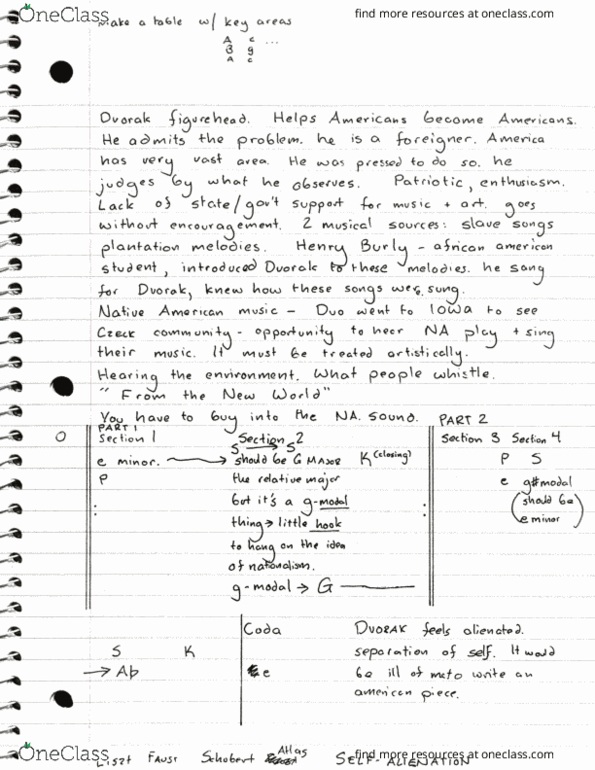 OneClass
find more resources at oneclass.com
Make a table w/ key areas
A c
B g ...
A c
Dvorak figurehead. Helps Americans become Americans.
He admits the problem. he is a foreigner. America
has very vast area. He was pressed to do so. he
judges by what he observes. Patriotic, enthusiasm.
Lack of state/gov't support for music + art. goes
without encouragement. 2 musical sources: slave songs
plantation melodies. Henry Burly - african american
student, introduced Dvorak to these melodies. he sang
for Dvorak, knew how these songs were sung.
Native American music - Dvo went to Iowa to see
Czeck community - opportunity to heer NA play + sing
their music. It must be treated artistically.
Hearing the environment. What people whistle.
"From the New World"
You have to buy into the NA. sound.
PART 1 PART 2
O Section 1 Section 2 Section 3 Section 4
S → S
e minor. → should be G Major K (closing) P S
P the relative major e g#modal
but it's a g-modal (should be
: thing → little hook : e minor)
to hang on the idea
of nationalism.
g-modal → G
Coda Dvorak feels alienated.
S K separation of self. It would
→ Ab e be ill of me to write an
american piece.
Liszt Faust Schubert Atlas SELF-ALIENATION
OneClass
find more resources at oneclass.com